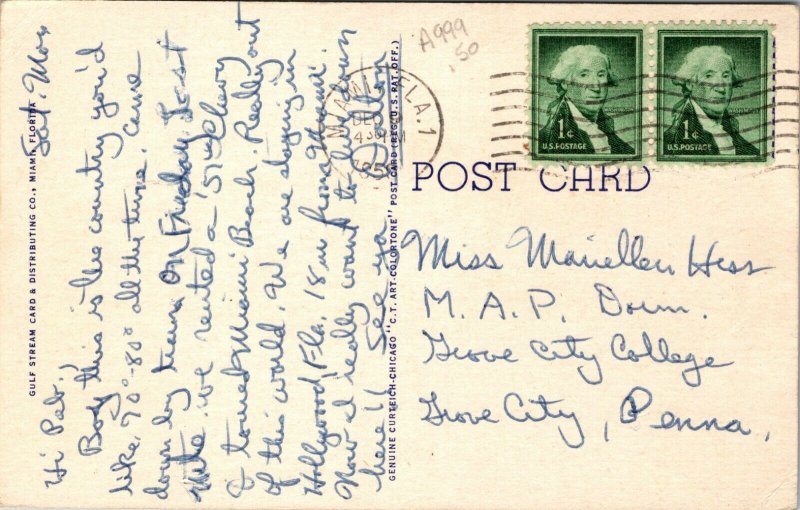 Sat. Morn
Hi Pat.,
Boy this is the country you'd
like. 70°-80° all the time. Came
down by train on Friday. Last
nite we rented a '57 Chevy
& toured Miami Beach. Really out
of this world. We are staying in
Hollywood Fla. 18 m from Miami.
Now I really want to live down
here!! See ya
GULF STREAM CARD & DISTRIBUTING CO., MIAMI, FLORIDA
GENUINE CURTEICH-CHICAGO "C.T. ART-COLORTONE" POST CARD (REG. U.S. PAT. OFF.)
A999
.50
MIAMI, FLA. 1
DEC
4 30 PM
1¢
U.S. POSTAGE
1¢
U.S. POSTAGE
POST CARD
Miss Mariellen Hess
M. A. P. Dorm.
Grove City College
Grove City, Penna.